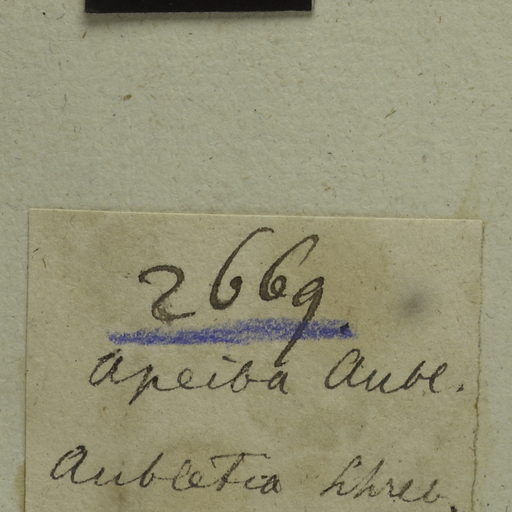 2669.
Apeiba Aubl.
Aubletia Schreb.